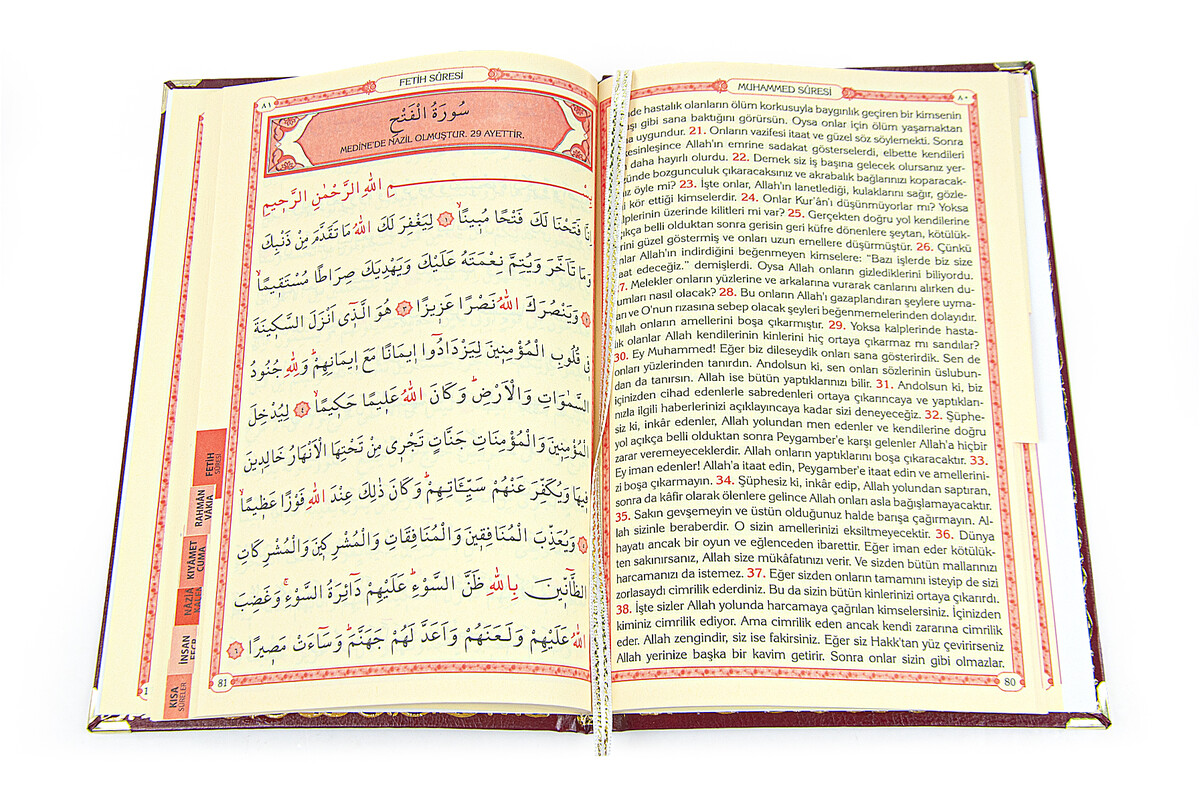 MUHAMMED SÛRESİ
٨٠
hastalık olanların ölüm korkusuyla baygınlık geçiren bir kimsenin
gibi sana baktığını görürsün. Oysa onlar için ölüm yaşamaktan
uygundur. 21. Onların vazifesi itaat ve güzel söz söylemekti. Sonra
kesinleşince Allah'ın emrine sadakat gösterselerdi, elbette kendileri
daha hayırlı olurdu. 22. Demek siz iş başına gelecek olursanız yer-
yüzünde bozgunculuk çıkaracaksınız ve akrabalık bağlarınızı koparacak-
öyle mi? 23. İşte onlar, Allah'ın lanetlediği, kulaklarını sağır, gözle-
kör ettiği kimselerdir. 24. Onlar Kur'ân'ı düşünmüyorlar mı? Yoksa
kalplerinin üzerinde kilitleri mi var? 25. Gerçekten doğru yol kendilerine
açıkça belli olduktan sonra gerisin geri küfre dönenlere şeytan, kötülük-
lerini güzel göstermiş ve onları uzun emellere düşürmüştür. 26. Çünkü
onlar Allah'ın indirdiğini beğenmeyen kimselere: "Bazı işlerde biz size
itaat edeceğiz." demişlerdi. Oysa Allah onların gizlediklerini biliyordu.
27. Melekler onların yüzlerine ve arkalarına vurarak canlarını alırken du-
rumları nasıl olacak? 28. Bu onların Allah'ı gazaplandıran şeylere uyma-
ları ve O'nun rızasına sebep olacak şeyleri beğenmemelerinden dolayıdır.
Allah onların amellerini boşa çıkarmıştır. 29. Yoksa kalplerinde hasta-
lık olanlar Allah kendilerinin kinlerini hiç ortaya çıkarmaz mı sandılar?
30. Ey Muhammed! Eğer biz dileseydik onları sana gösterirdik. Sen de
onları yüzlerinden tanırdın. Andolsun ki, sen onları sözlerinin üslubun-
dan da tanırsın. Allah ise bütün yaptıklarınızı bilir. 31. Andolsun ki, biz
içinizden cihad edenlerle sabredenleri ortaya çıkarıncaya ve yaptıkları-
nızla ilgili haberlerinizi açıklayıncaya kadar sizi deneyeceğiz. 32. Şüphe-
siz ki, inkâr edenler, Allah yolundan men edenler ve kendilerine doğru
yol açıkça belli olduktan sonra Peygamber'e karşı gelenler Allah'a hiçbir
zarar veremeyeceklerdir. Allah onların yaptıklarını boşa çıkaracaktır. 33.
Ey iman edenler! Allah'a itaat edin, Peygamber'e itaat edin ve amellerini-
zi boşa çıkarmayın. 34. Şüphesiz ki, inkâr edip, Allah yolundan saptıran,
sonra da kâfir olarak ölenlere gelince Allah onları asla bağışlamayacaktır.
35. Sakın gevşemeyin ve üstün olduğunuz halde barışa çağırmayın. Al-
lah sizinle beraberdir. O sizin amellerinizi eksiltmeyecektir. 36. Dünya
hayatı ancak bir oyun ve eğlenceden ibarettir. Eğer iman eder kötülük-
ten sakınırsanız, Allah size mükâfatınızı verir. Ve sizden bütün mallarınızı
harcamanızı da istemez. 37. Eğer sizden onların tamamını isteyip de sizi
zorlasaydı cimrilik ederdiniz. Bu da sizin bütün kinlerinizi ortaya çıkarırdı.
38. İşte sizler Allah yolunda harcamaya çağrılan kimselersiniz. İçinizden
kiminiz cimrilik ediyor. Ama cimrilik eden ancak kendi zararına cimrilik
eder. Allah zengindir, siz ise fakirsiniz. Eğer siz Hakk'tan yüz çevirirseniz
Allah yerinize başka bir kavim getirir. Sonra onlar sizin gibi olmazlar.
80
٨١
FETİH SÛRESİ
سُورَةُ الْفَتْحِ
MEDİNE'DE NAZİL OLMUŞTUR. 29 AYETTİR.
بِسْمِ اللهِ الرَّحْمٰنِ الرَّحِيمِ
اِنَّا فَتَحْنَا لَكَ فَتْحًا مُبِينًاۙ ﴿١﴾ لِيَغْفِرَ لَكَ اللهُ مَا تَقَدَّمَ مِنْ ذَنْبِكَ
وَمَا تَاَخَّرَ وَيُتِمَّ نِعْمَتَهُ عَلَيْكَ وَيَهْدِيَكَ صِرَاطًا مُسْتَقِيمًاۙ
﴿٢﴾ وَيَنْصُرَكَ اللهُ نَصْرًا عَزِيزًا ﴿٣﴾ هُوَ الَّذِٓي اَنْزَلَ السَّكِينَةَ
فِي قُلُوبِ الْمُؤْمِنِينَ لِيَزْدَادُٓوا اِيمَانًا مَعَ اِيمَانِهِمْۜ وَلِلّٰهِ جُنُودُ
السَّمٰوَاتِ وَالْاَرْضِۜ وَكَانَ اللهُ عَلِيمًا حَكِيمًاۙ ﴿٤﴾ لِيُدْخِلَ
الْمُؤْمِنِينَ وَالْمُؤْمِنَاتِ جَنَّاتٍ تَجْرِي مِنْ تَحْتِهَا الْاَنْهَارُ خَالِدِينَ
فِيهَا وَيُكَفِّرَ عَنْهُمْ سَيِّـَٔاتِهِمْۜ وَكَانَ ذٰلِكَ عِنْدَ اللهِ فَوْزًا عَظِيمًاۙ
﴿٥﴾ وَيُعَذِّبَ الْمُنَافِقِينَ وَالْمُنَافِقَاتِ وَالْمُشْرِكِينَ وَالْمُشْرِكَاتِ
الظَّٓانِّينَ بِاللهِ ظَنَّ السَّوْءِۜ عَلَيْهِمْ دَٓائِرَةُ السَّوْءِۚ وَغَضِبَ
اللهُ عَلَيْهِمْ وَلَعَنَهُمْ وَاَعَدَّ لَهُمْ جَهَنَّمَۜ وَسَٓاءَتْ مَصِيرًا ﴿٦﴾
81
FETİH
SÛRESİ
RAHMÂN
VÂKIA
KIYÂMET
CUMA
İNSAN
KISA
SÛRELER